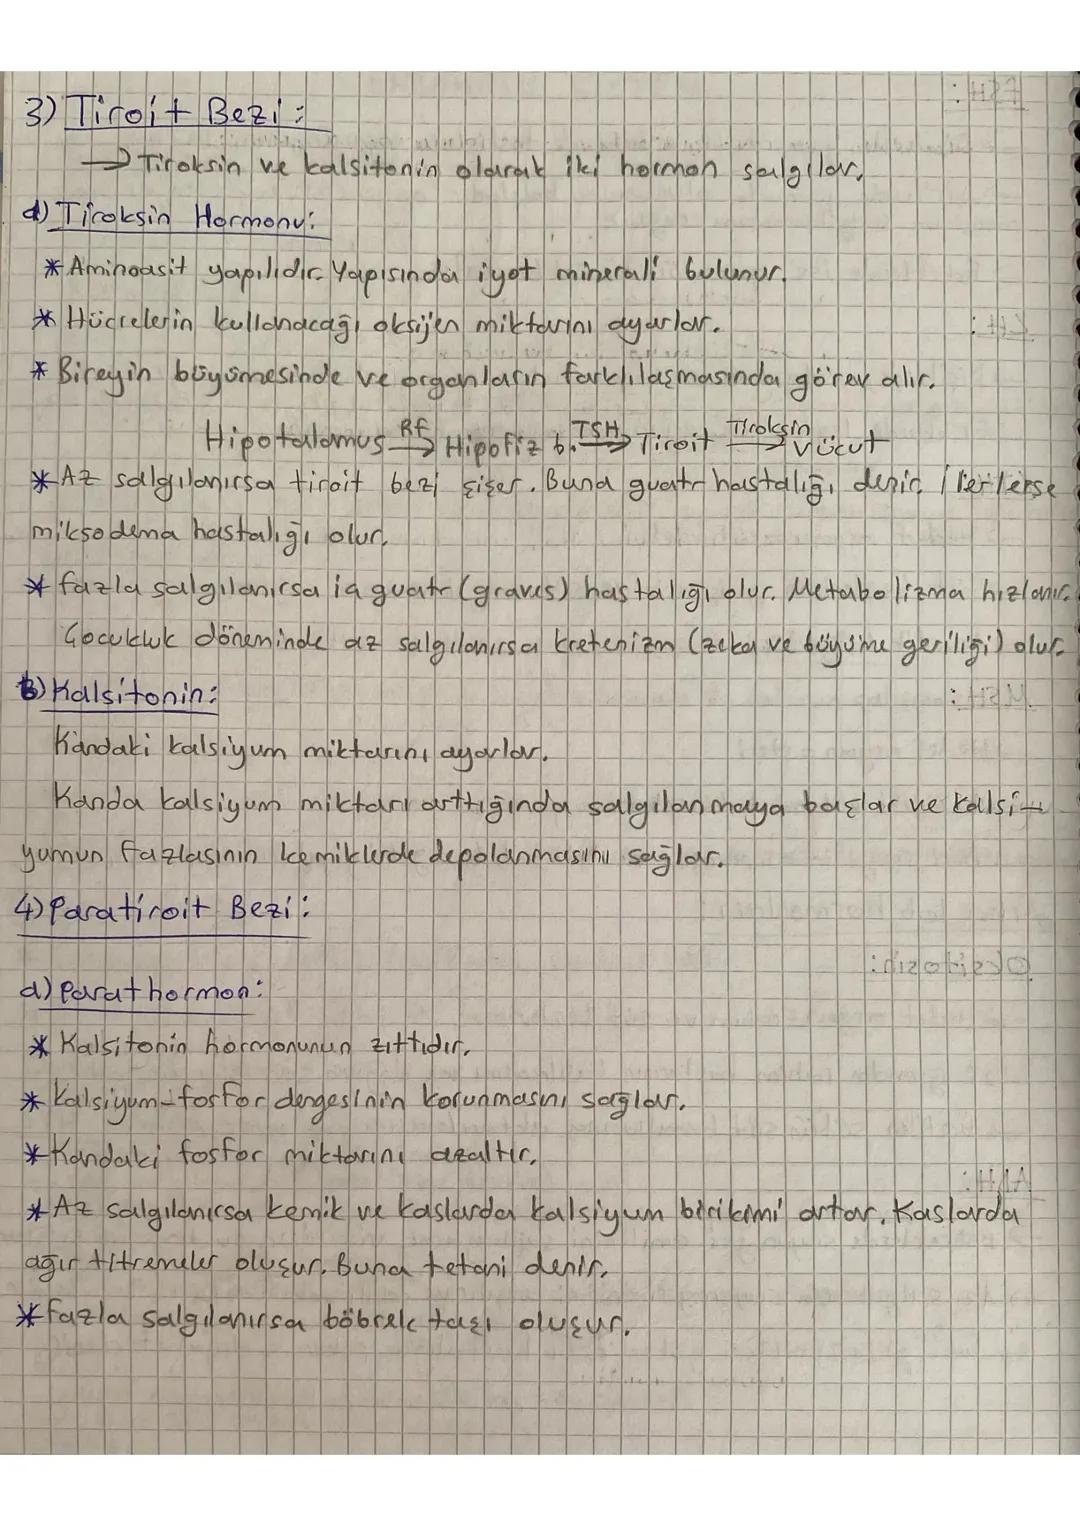 3) Tiroit Bezi:
→ Tiroksin ve kalsitonin olarak iki hormon salgılar.
a) Tiroksin Hormonu:
* Aminoasit yapılıdır. Yapısında iyot minerali bulunur.
* Hücrelerin kullanacağı oksijen miktarını ayarlar.
* Bireyin büyümesinde ve organların farklılaşmasında görev alır.
Hipotalamus RF→ Hipofiz b. TSH→ Tiroit Tiroksin→ Vücut
* Az salgılanırsa tiroit bezi şişer. Buna guatr hastalığı denir. İlerlerse
miksodema hastalığı olur.
* Fazla salgılanırsa iç guatr (graves) hastalığı olur. Metabolizma hızlanır.
Çocukluk döneminde az salgılanırsa kretenizm (zeka ve büyüme geriliği) olur.
b) Kalsitonin:
Kandaki kalsiyum miktarını ayarlar.
Kanda kalsiyum miktarı arttığında salgılanmaya başlar ve kalsi-
yumun fazlasının kemiklerde depolanmasını sağlar.
4) Paratiroit Bezi:
a) Parathormon:
* Kalsitonin hormonunun zıttıdır.
* Kalsiyum-fosfor dengesinin korunmasını sağlar.
* Kandaki fosfor miktarını azaltır.
* Az salgılanırsa kemik ve kaslarda kalsiyum birikimi artar. Kaslarda
ağır titremeler oluşur. Buna tetani denir.
* Fazla salgılanırsa böbrek taşı oluşur.